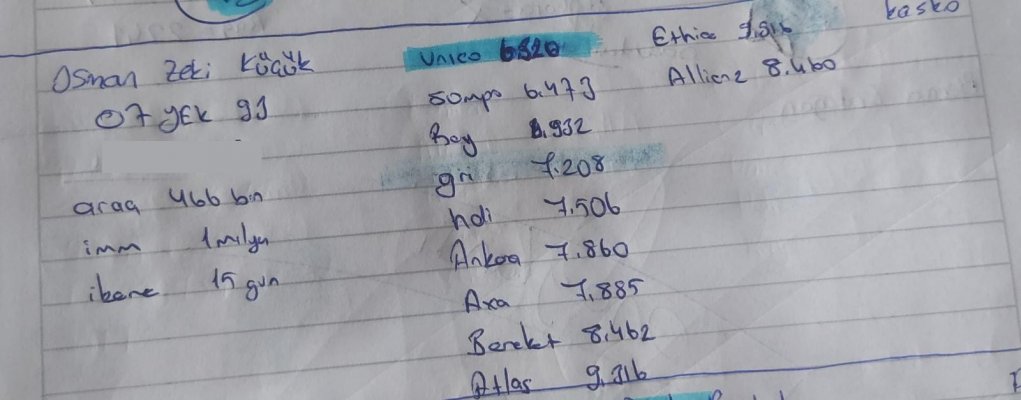 kasko
Osman Zeki Küçük
07 YEK 91
araç 466 bin
imm 1 milyn
ikame 15 gün
Unico 6820
Sompo 6.473
Ray 6.932
gri 7.208
hdi 7.506
Ankara 7.860
Axa 7.885
Bereket 8.462
Atlas 9.316
Ethica 7.916
Allianz 8.460